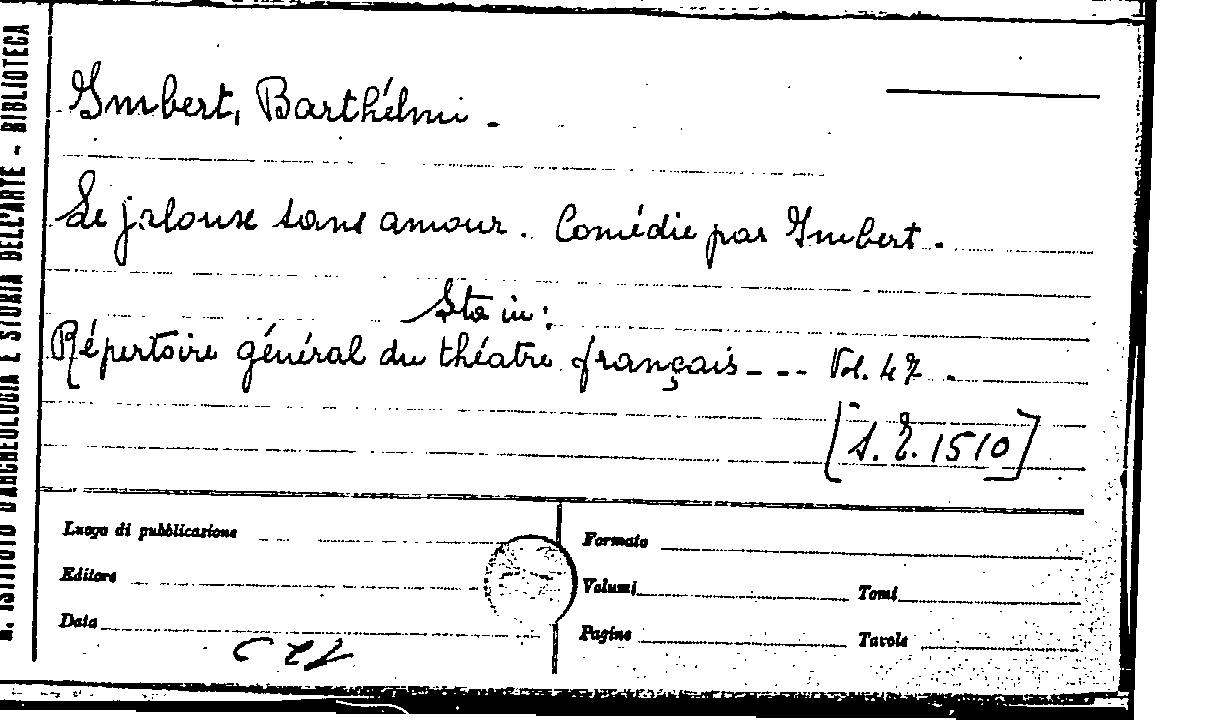 R. ISTITUTO D'ARCHEOLOGIA E STORIA DELL'ARTE - BIBLIOTECA
Imbert, Barthélmi.
Le jalouse sans amour. Comédie par Imbert.
Sta in:
Répertoire général du théatre français --- Vol. 47.
[S. T. 1510]
Luogo di pubblicazione
Formato
Editore
Volumi
Tomi
Data
Pagine
Tavole